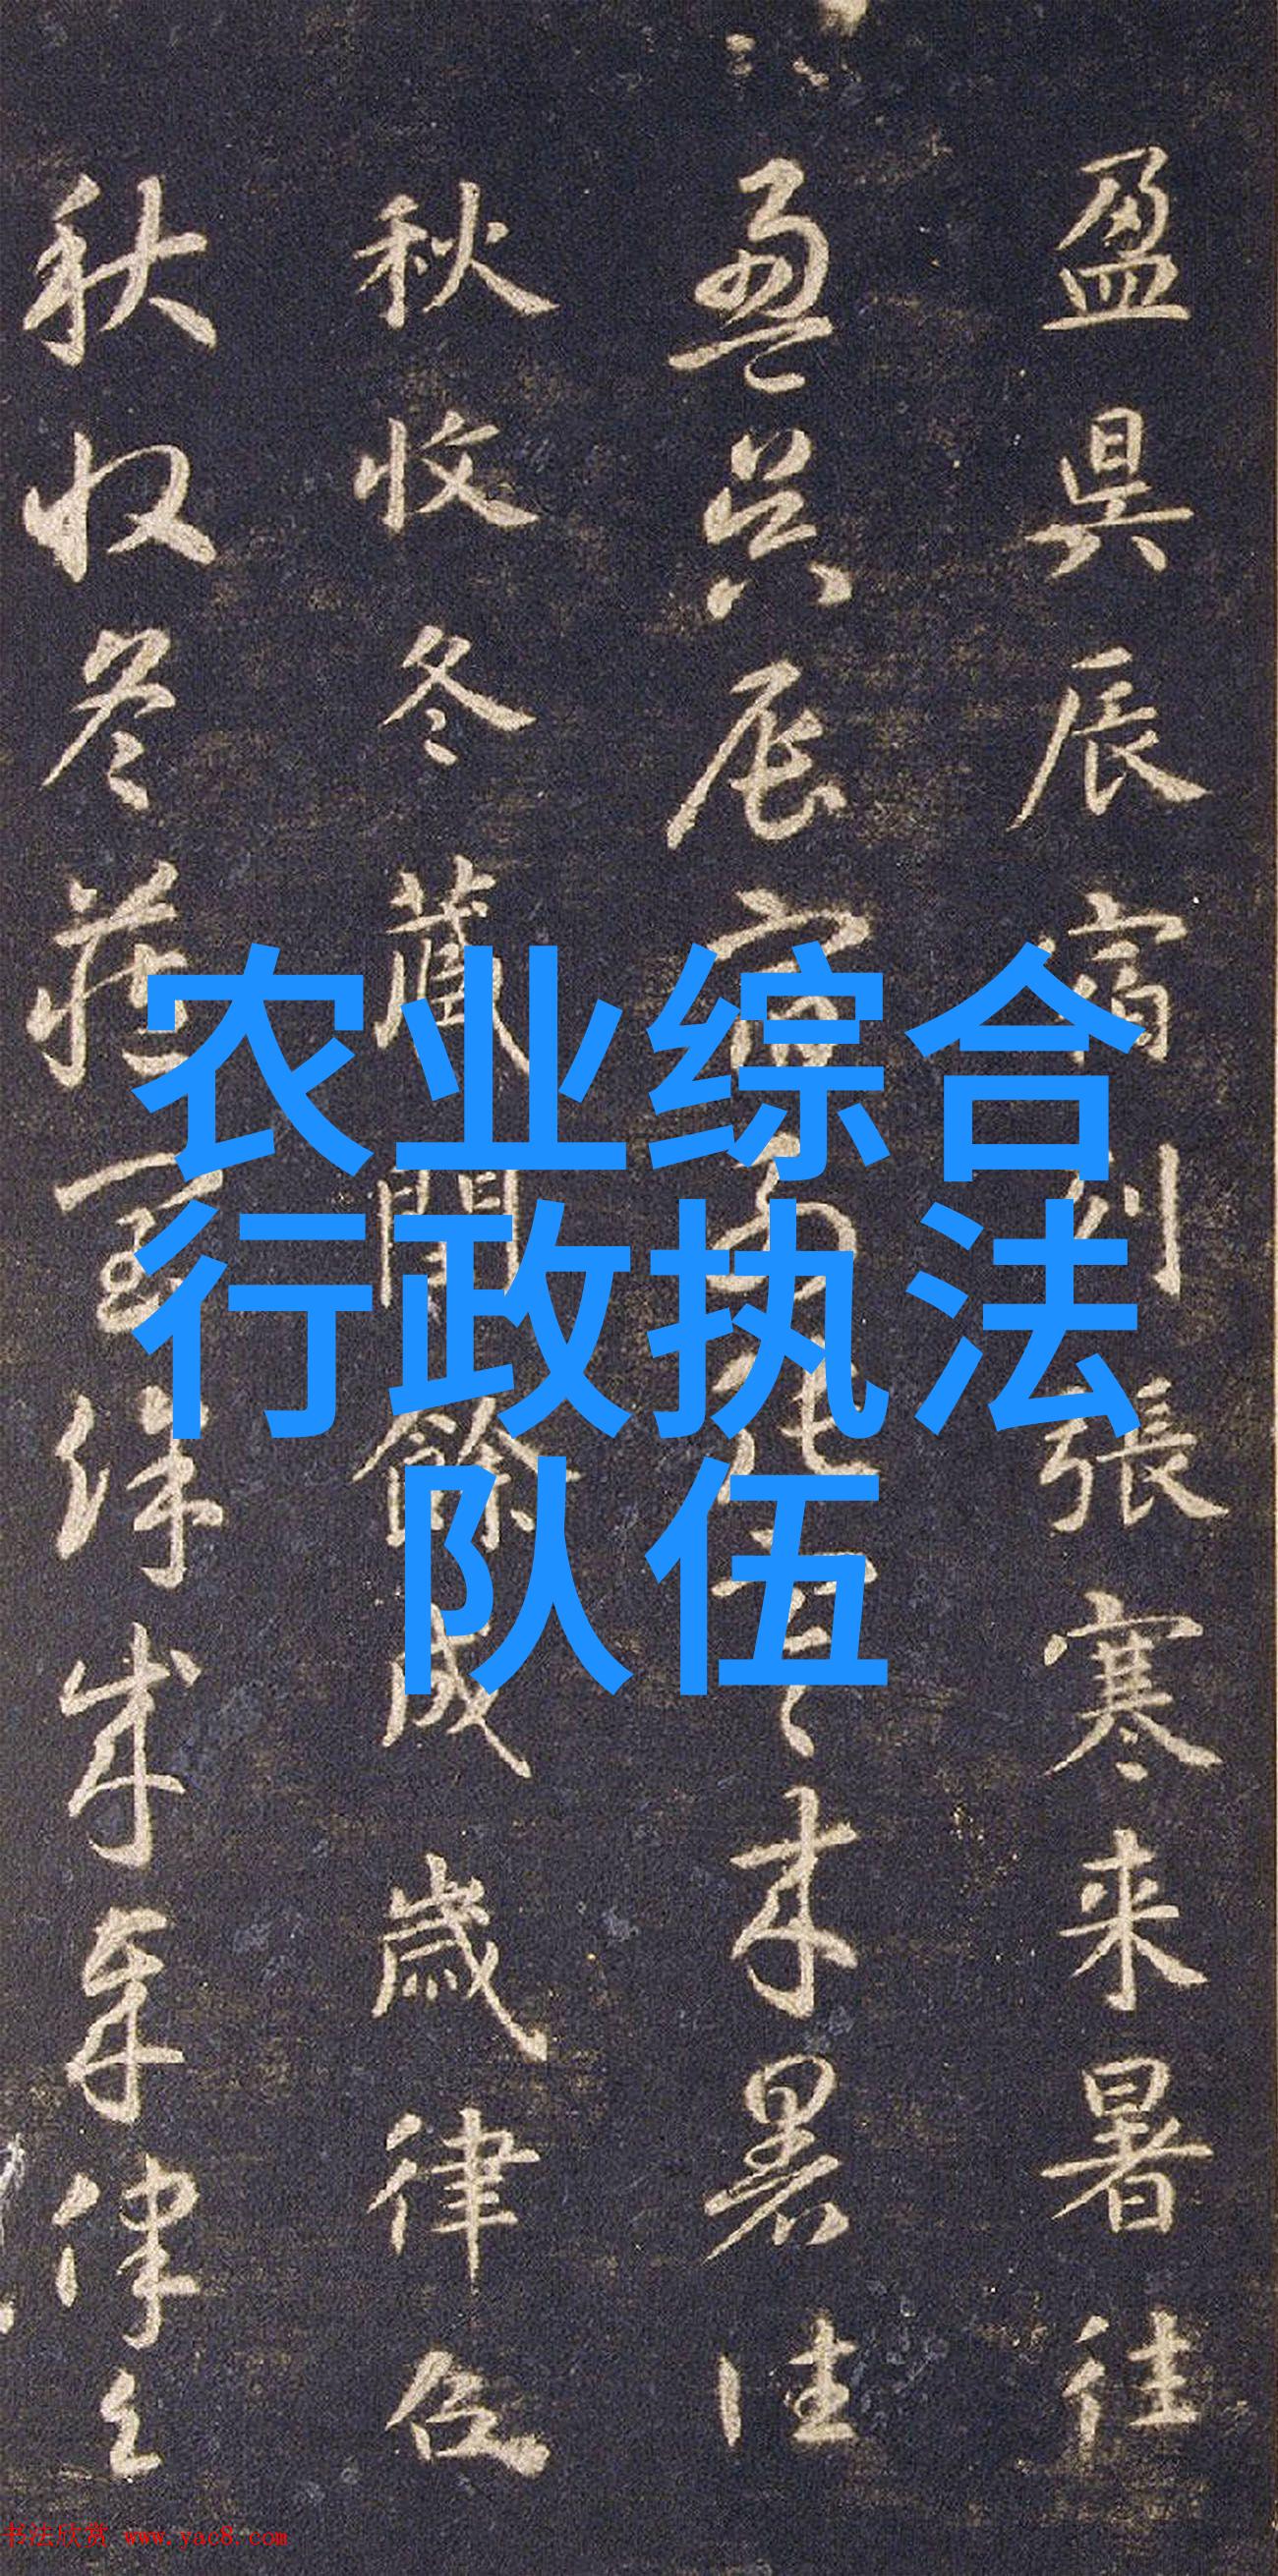 盈昃辰宿列張寒来暑往
盈昃辰宿列張寒来暑往
秋收冬藏閏餘成歲律吕
秋收冬藏閏餘成歲律吕
农业综合
行政执法
队伍
书法欣赏 www.yac8.com